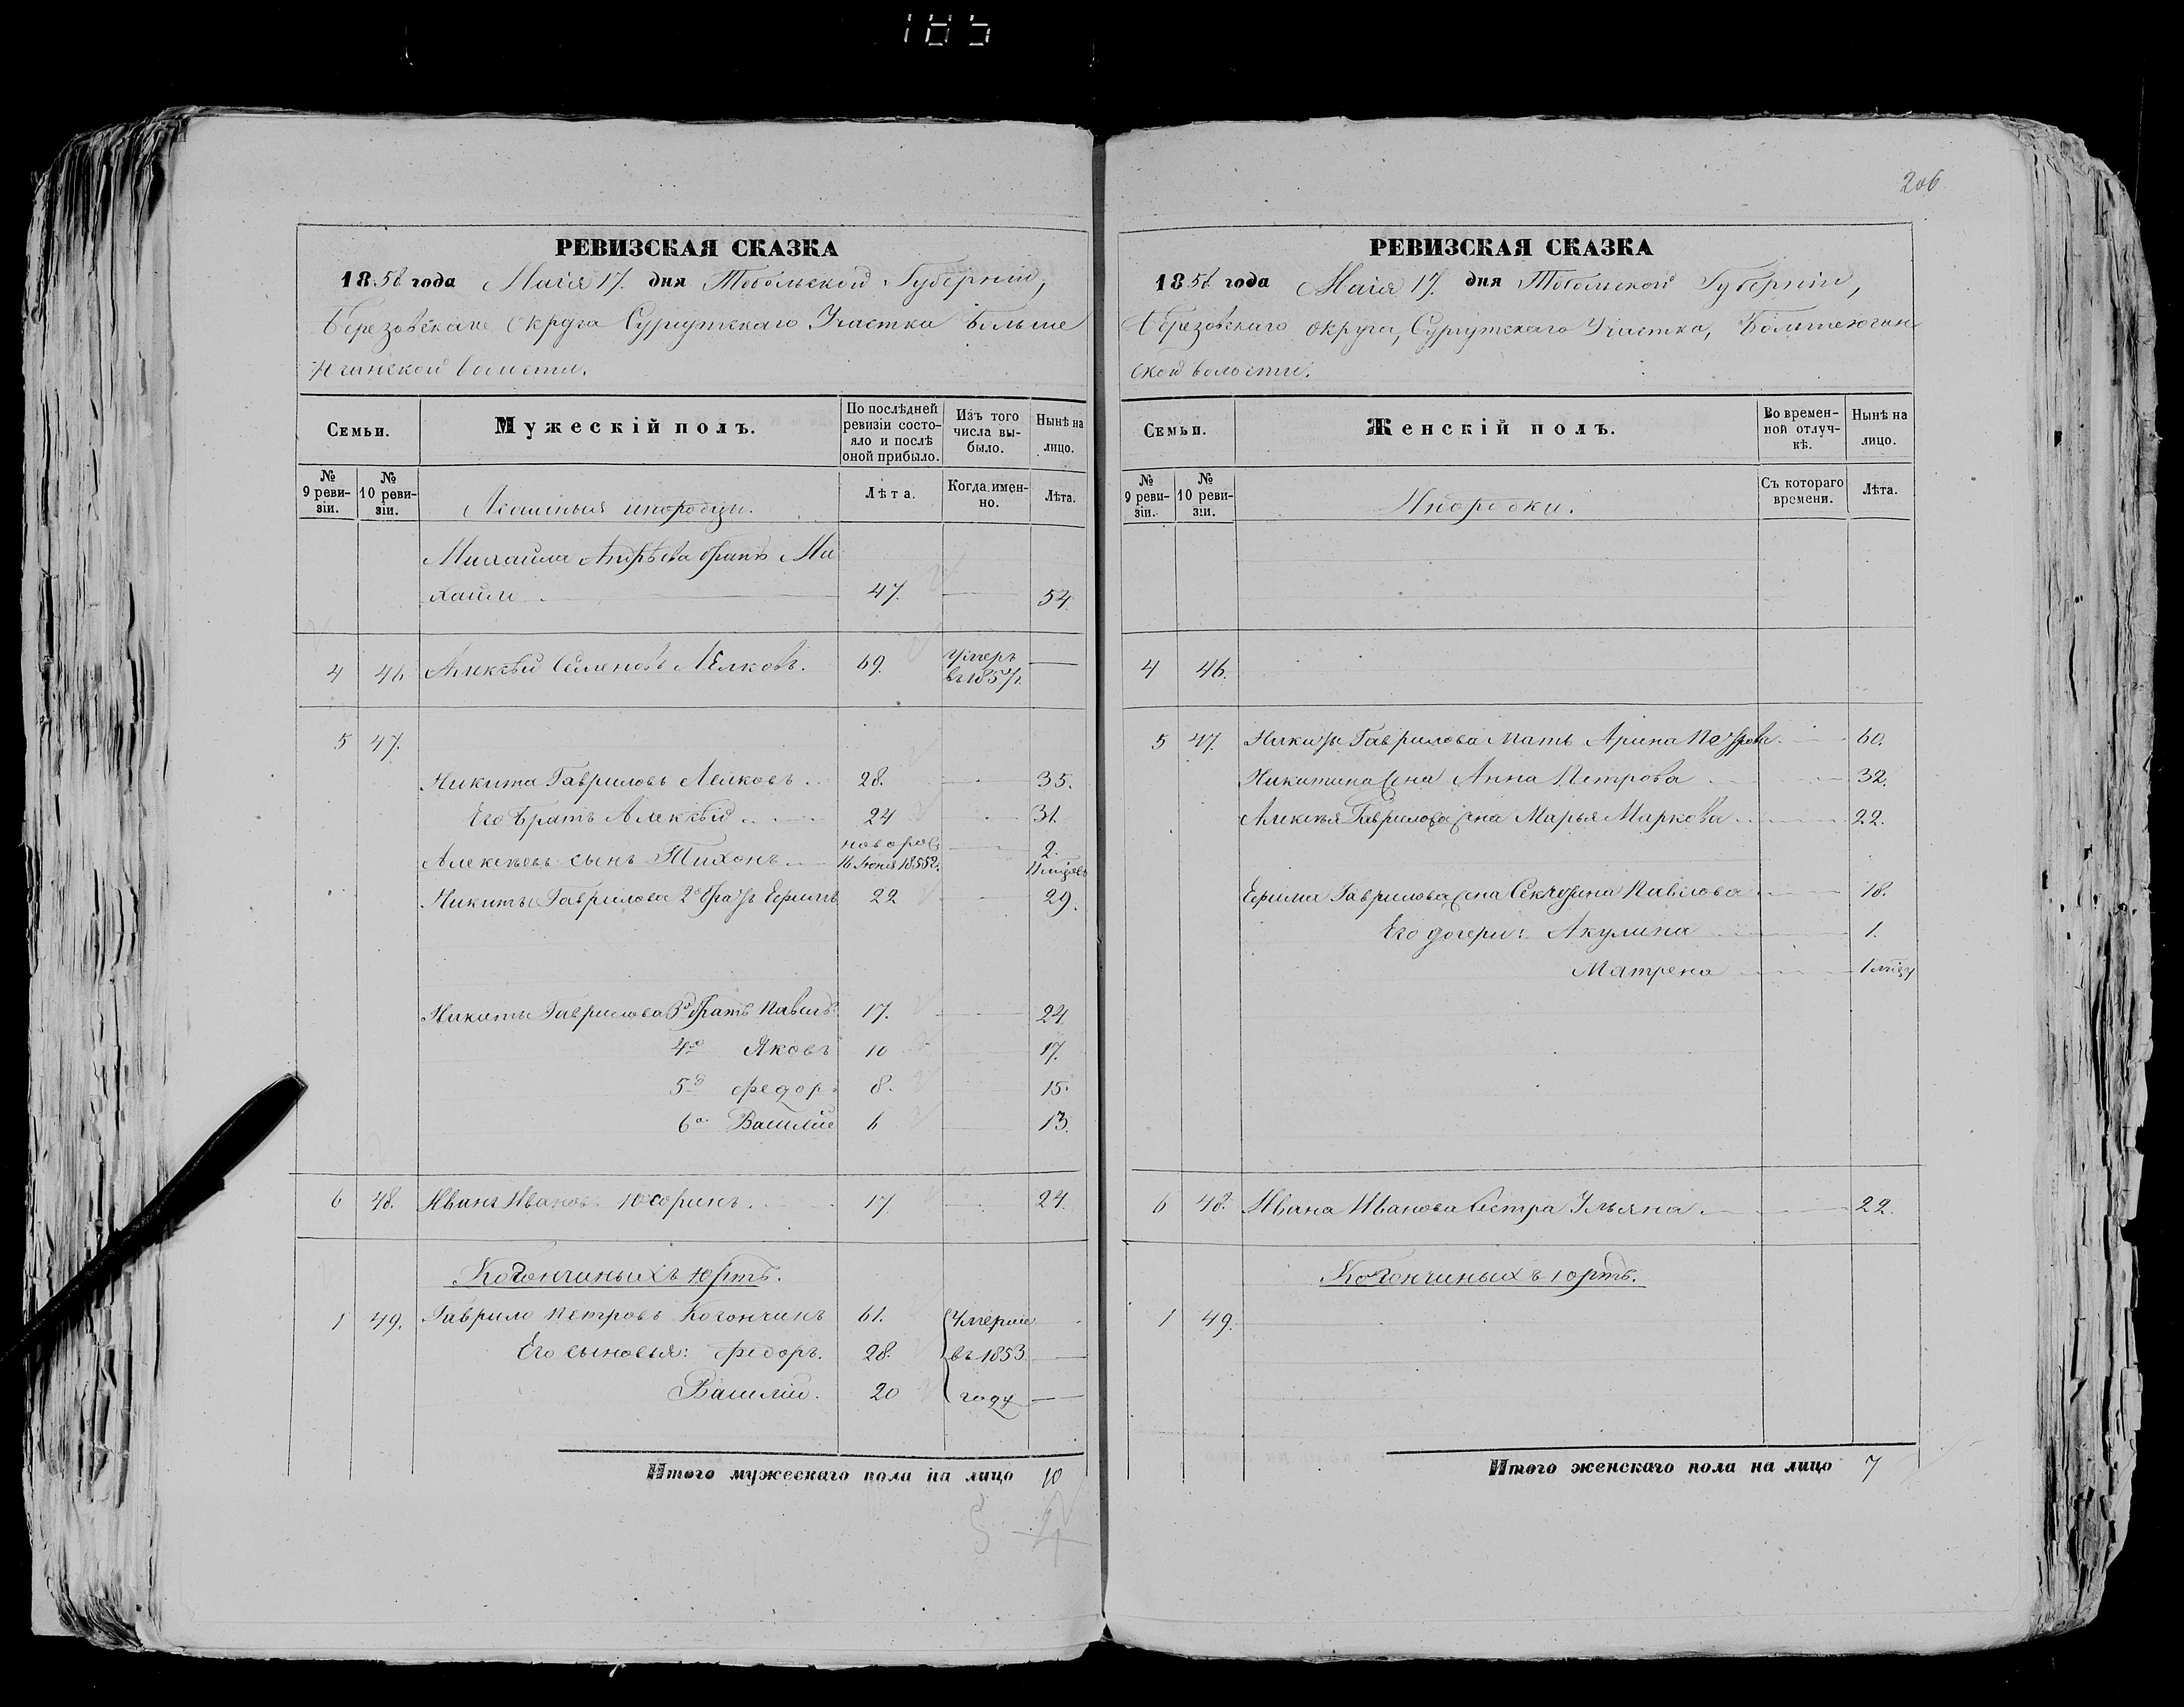 185
206
РЕВИЗСКАЯ СКАЗКА
1858 года Маія 17. дня Тобольской Губерніи,
Березовскаго округа Сургутскаго Участка Больше
Юганской волости.
Семьи.
Мужескій полъ.
По послѣдней ревизіи состояло и послѣ оной прибыло.
Изъ того числа выбыло.
Нынѣ на лицо.
№ 9 ревизіи.
№ 10 ревизіи.
Ясашныя инородцы.
Лѣта.
Когда именно.
Лѣта.
Михаила Андрѣева братъ Ми
хаилъ 47. 54.
4 46 Алексѣй Семеновъ 69. Умеръ въ 1857 г.
5 47.
Никита Гавриловъ 28. 35.
Его братъ Алексѣй 24 31.
Алексѣевъ сынъ Тихонъ новорож 2.
Никиты Гаврилова 2й братъ Ефимъ 22 29.
Никиты Гаврилова 3й братъ Павелъ 17. 24
4й Яковъ 10 17.
5й Федоръ 8. 15.
6й Василій 6 13.
6 48. Иванъ Ивановъ 17. 24.
Когончиныхъ юртъ.
1 49. Гаврило Петровъ Когончинъ 61. Умерше
Его сыновья: Федоръ. 28. въ 1853
Василій. 20 году
Итого мужескаго пола на лицо 10
РЕВИЗСКАЯ СКАЗКА
1858 года Маія 17. дня Тобольской Губерніи,
Березовскаго округа, Сургутскаго Участка, Большеюган
ской волости.
Семьи.
Женскій полъ.
Во временной отлучкѣ.
Нынѣ на лицо.
№ 9 ревизіи.
№ 10 ревизіи.
Инородки.
Съ котораго времени.
Лѣта.
4 46.
5 47. Никиты Гаврилова мать Арина Петрова 60.
Никитина жена Анна Петрова 32.
Алексѣя Гаврилова жена Марья Маркова 22.
Ефима Гаврилова жена Павлова 18.
Его дочери: Акулина 1.
Матрена 1 мѣсяц
6 48. Ивана Иванова сестра Ульяна 22.
Когончиныхъ юртъ.
1 49.
Итого женскаго пола на лицо 7